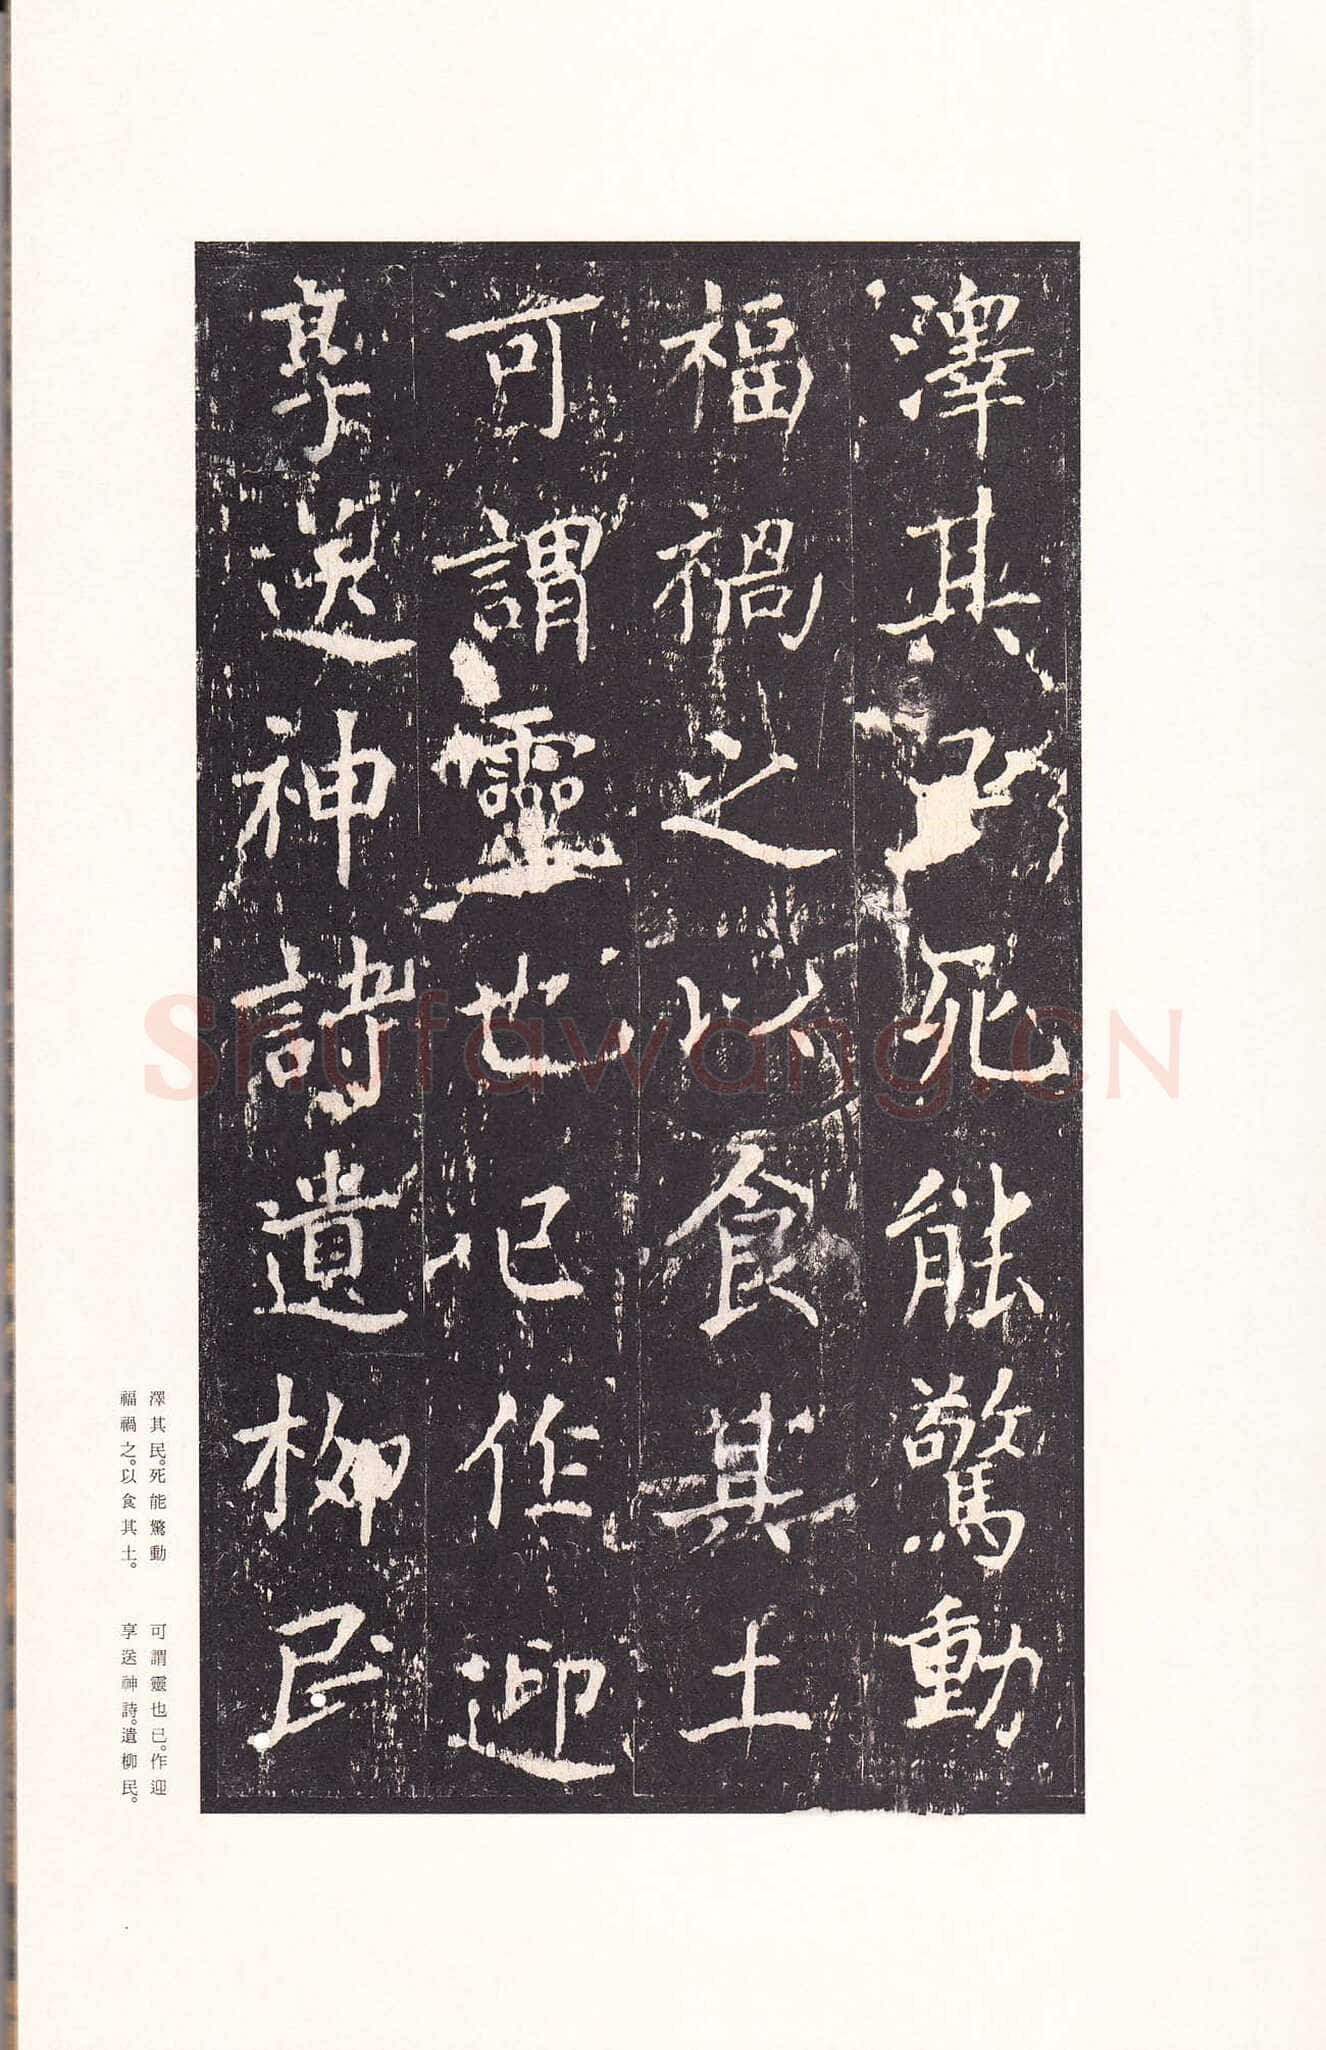 澤其民死能驚動
福禍之以食其土
可謂靈也已作迎
享送神詩遺柳民
澤其民。死能驚動
福禍之。以食其土。
可謂靈也已。作迎
享送神詩。遺柳民。
Shufawang.CN